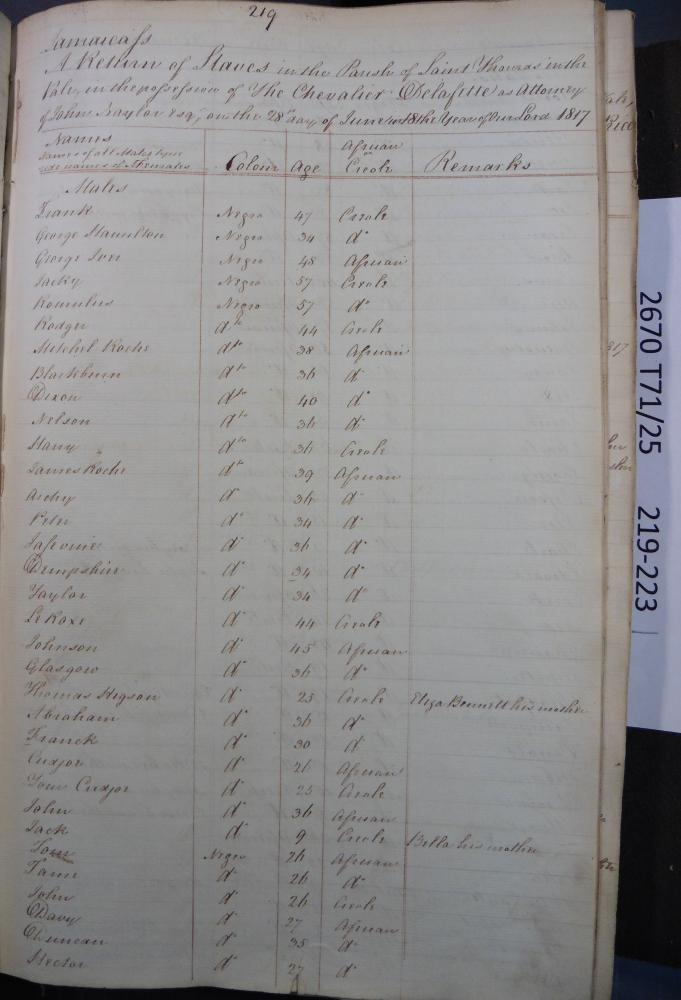 219
Jamaica ss
A Return of Slaves in the Parish of Saint Thomas in the
Vale, in the possession of The Chevalier Delafitte as Attorney
of John Baylor Esqr, on the 28th day of June in the Year of Our Lord 1817
Names
Names of all Males to precede names of Females Colour Age African or Creole Remarks
Males
Frank Negro 47 Creole
George Hamilton Negro 34 do
George Negro 48 African
Jacky Negro 57 Creole
Romulus Negro 57 do
Rodger do 44 Creole
Mitchel Roche do 38 African
Blackburn do 36 do
Dixon do 40 do
Nelson do 36 do
Harry do 36 Creole
James Roche do 39 African
Archy do 36 do
Peter do 34 do
do 36 do
Dempshire do 34 do
Taylor do 34 do
do 44 Creole
Johnson do 45 African
Glasgow do 36 do
Thomas Higson do 25 Creole Eliza Bennett his mother
Abraham do 36 do
Franck do 30 do
Cudjor do 26 African
Tom Cudjor do 25 Creole
John do 36 African
Jack do 9 Creole Bella his mother
Tom Negro 26 African
do 26 do
John do 26 Creole
Davy do 27 African
Duncan do 35 do
Hector do 27 do
2670 T71/25 219-223